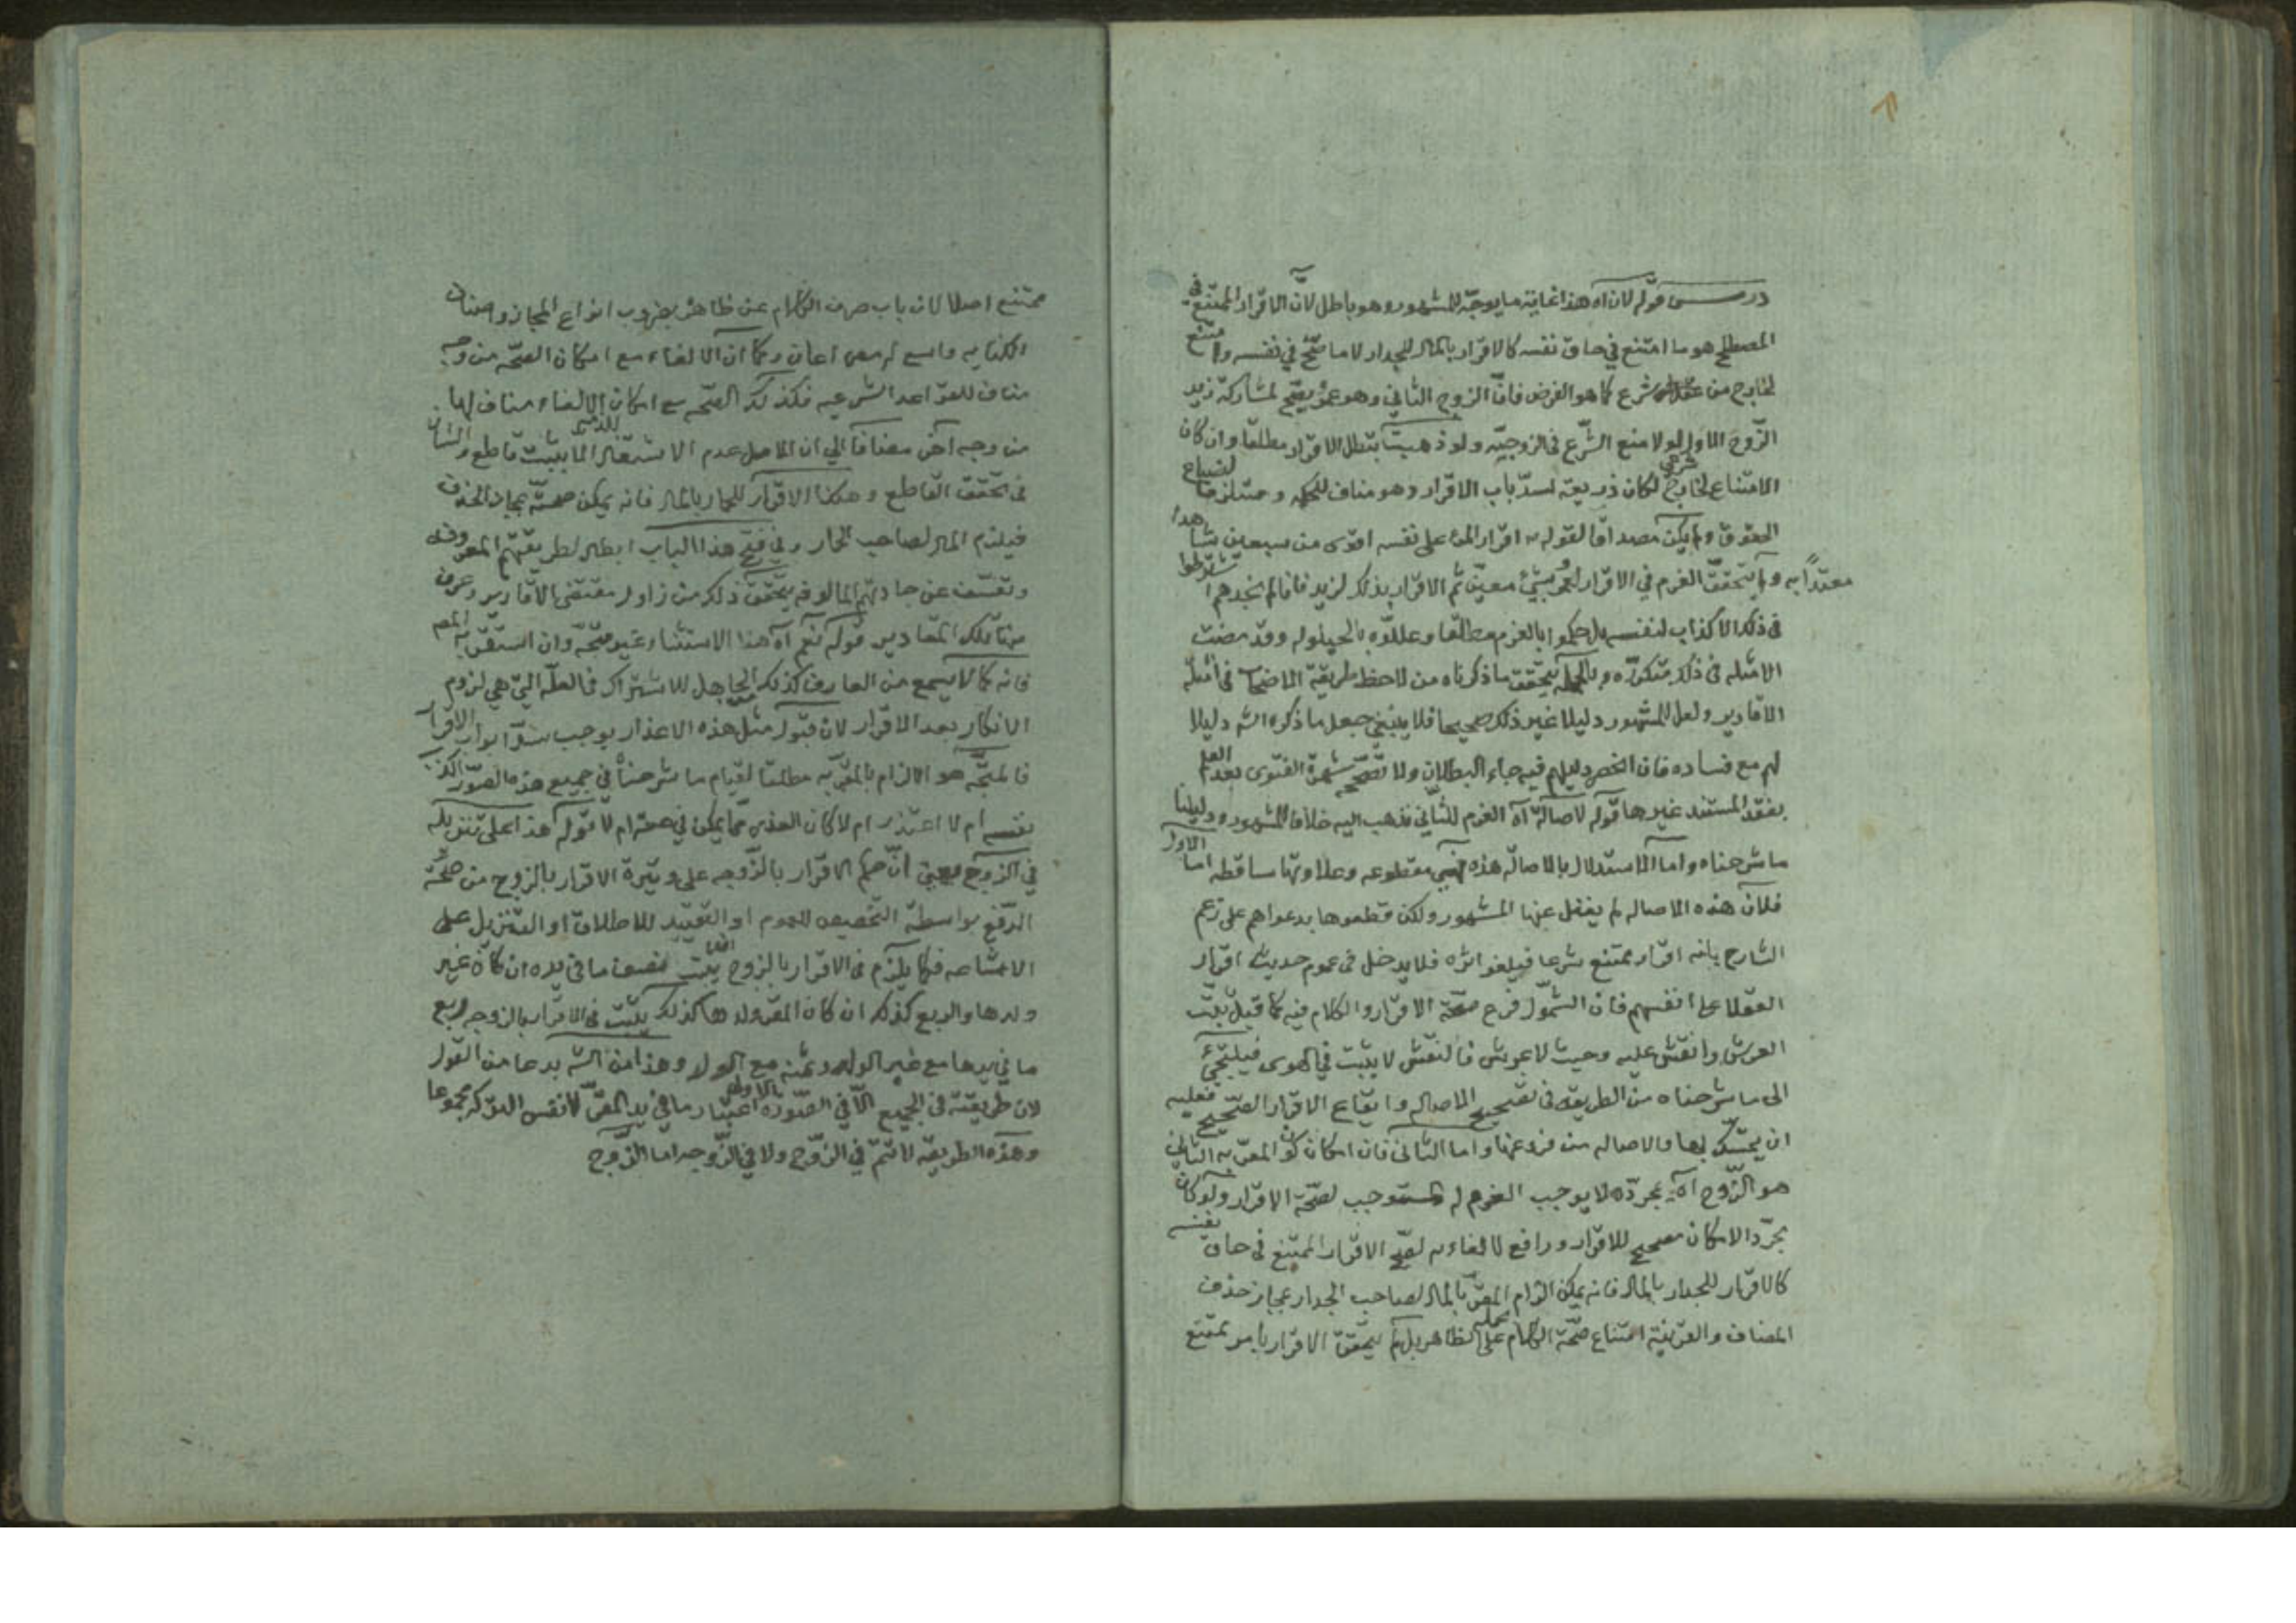 درس قوله لان اه هذا غاية ما يوجّه للمشهور وهو باطل لانّ الاقرار الممتنع في
المصطلح هو ما امتنع في حاق نفسه كالاقرار بالمال للجدار لا ما صحّ في نفسه وامتنع
لخارج من عقل او شرع كما هو الفرض فانّ الزوج الثاني وهو عمرو يصحّ لمشاركة زيد
الزّوج الاول لولا منع الشّرع في الزوجيّه ولو ذهبت بتطل الاقرار مطلقا وان كان
الامتناع لخارج شرعي لكان ذريعة لسدّ باب الاقرار وهو مناف للحكمه ومستلزما لضياع
الحقوق ولم يكن مصداقا لقوله اقرار المرء على نفسه اقوى من سبعين شاهدا
معتدّا به ولم يتحقق الغرم في الاقرار لعمرو بشيء معيّن ثم الاقرار بذلك لزيد فانا لم نجدهم اشترطوا
في ذلك الاكذاب لنفسه بل حكموا بالغرم مطلقا وعللوه بالحيلوله وقد مضت
الامثله في ذلك متكرّره وبالجمله يتحقق ما ذكرناه من لاحظ طريقة الاصحاب في امثلة
الاقارير ولعل للمشهور دليلا غير ذلك صحيحا فلا ينبغي جعل ما ذكره الش دليلا
لهم مع فساده فان انحصر دليلهم فيه جاء البطلان ولا تصحّحه شهرة الفتوى بعد العلم
بفقد المستند غيرها قوله لاصالة اه الغرم للثاني فذهب اليه خلافا للمشهور ودليلنا
ما شرحناه واما الاستدلال بالاصاله هذه فهي مقطوعه وعلاوتها ساقطه اما الاول
فلان هذه الاصاله لم يغفل عنها المشهور ولكن قطعوها بدعواهم على زعم
الشارح بانه اقرار ممتنع شرعا فيلغو اثره فلا يدخل في عموم حديث اقرار
العقلا على انفسهم فان الشمول فرع صحّة الاقرار والكلام فيه كما قيل ثبّت
العرش وانقش عليه وحيث لا عرش فالنقش لا يثبت في الهوى فيلتجئ
الى ما شرحناه من الطريقه في تصحيح الاصاله وايقاع الاقرار الصّحيح فعليه
ان يتمسّك بها والاصاله من فروعها واما الثاني فان امكان كون المقرّ به الثاني
هو الزّوج اه بمجرّده لا يوجب الغرم له المستوجب لصحّة الاقرار ولو كان
مجرّد الامكان مصحح للاقرار ورافع لالغاءه لصحّ الاقرار الممتنع في حاق نفسه
كالاقرار للجدار بالمال فانه يمكن الزام المقرّ بالمال لصاحب الجدار بمجاز حذف
المضاف والقرينة امتناع صحّة الكلام بحمله على الظاهر بل لم يتحقق الاقرار بامر ممتنع
ممتنع اصلا لان باب صرف الكلام عن ظاهره بضروب انواع المجاز واصناف
الكنايه واسع لمن اعان وكما ان الالغاء مع امكان الصحّه من وجه
مناف للقواعد الشرعيه فكذلك الصحّه مع امكان الالغاء مناف لها
من وجه اخر مضافا الى ان الاصل عدم الاشتغال الا بمثبت قاطع والشان
في تحقق القاطع وهكذا الاقرار للحمار بالمال فانه يمكن صحّته بمجاز الحذف
فيلزم المال لصاحب الحمار وفي فتح هذا الباب ابطال لطريقتهم المعروفه
وتعسّف عن جادتهم المالوفه يتحقق ذلك من زاول مقتضى الاقارير وعرف
تلك المقادير قوله نعم اه هذا الاستثناء غير متجّه وان استقربه المص
فانه كما لا يسمع من العارف كذلك الجاهل للاشتراك في العلّه التي هي لزوم
الانكار بعد الاقرار لان قبول مثل هذه الاعذار يوجب سدّ ابواب الاقرار
فالمتجّه هو الالزام بالمقرّ به مطلقا لقيام ما شرحناه في جميع هذه الصّور اكذب
نفسه ام لا اعتذر ام لا كان العذر ممّا يمكن في حقه ام لا قوله هذا على تنزيله
في الزوج يعني انّ حكم الاقرار بالزّوجه على وتيرة الاقرار بالزوج من صحّة
الدّفع بواسطة التخصيص للعموم او التقييد للاطلاق او التنزيل على
الاشاعه فكما يلزم في الاقرار بالزوج نصف ما في يده ان كان غير
ولدها والربع كذلك ان كان المقرّ ولدها كذلك يثبت في الاقرار بالزوجه ربع
ما في يدها مع غير الولد وثمنه مع الولد وهذا من الش بدعا من القول
لان طريقته في الجميع الّا في الصّورة الاولى اعتبار ما في يد المقرّ لا نفس التركه مجموعا
وهذه الطريقه لا تتمّ في الزّوج ولا في الزّوجه اما الزّوج